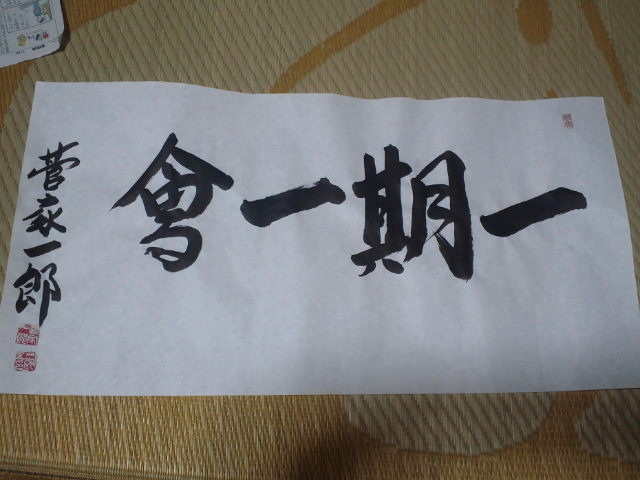 一期一會
菅義一郎